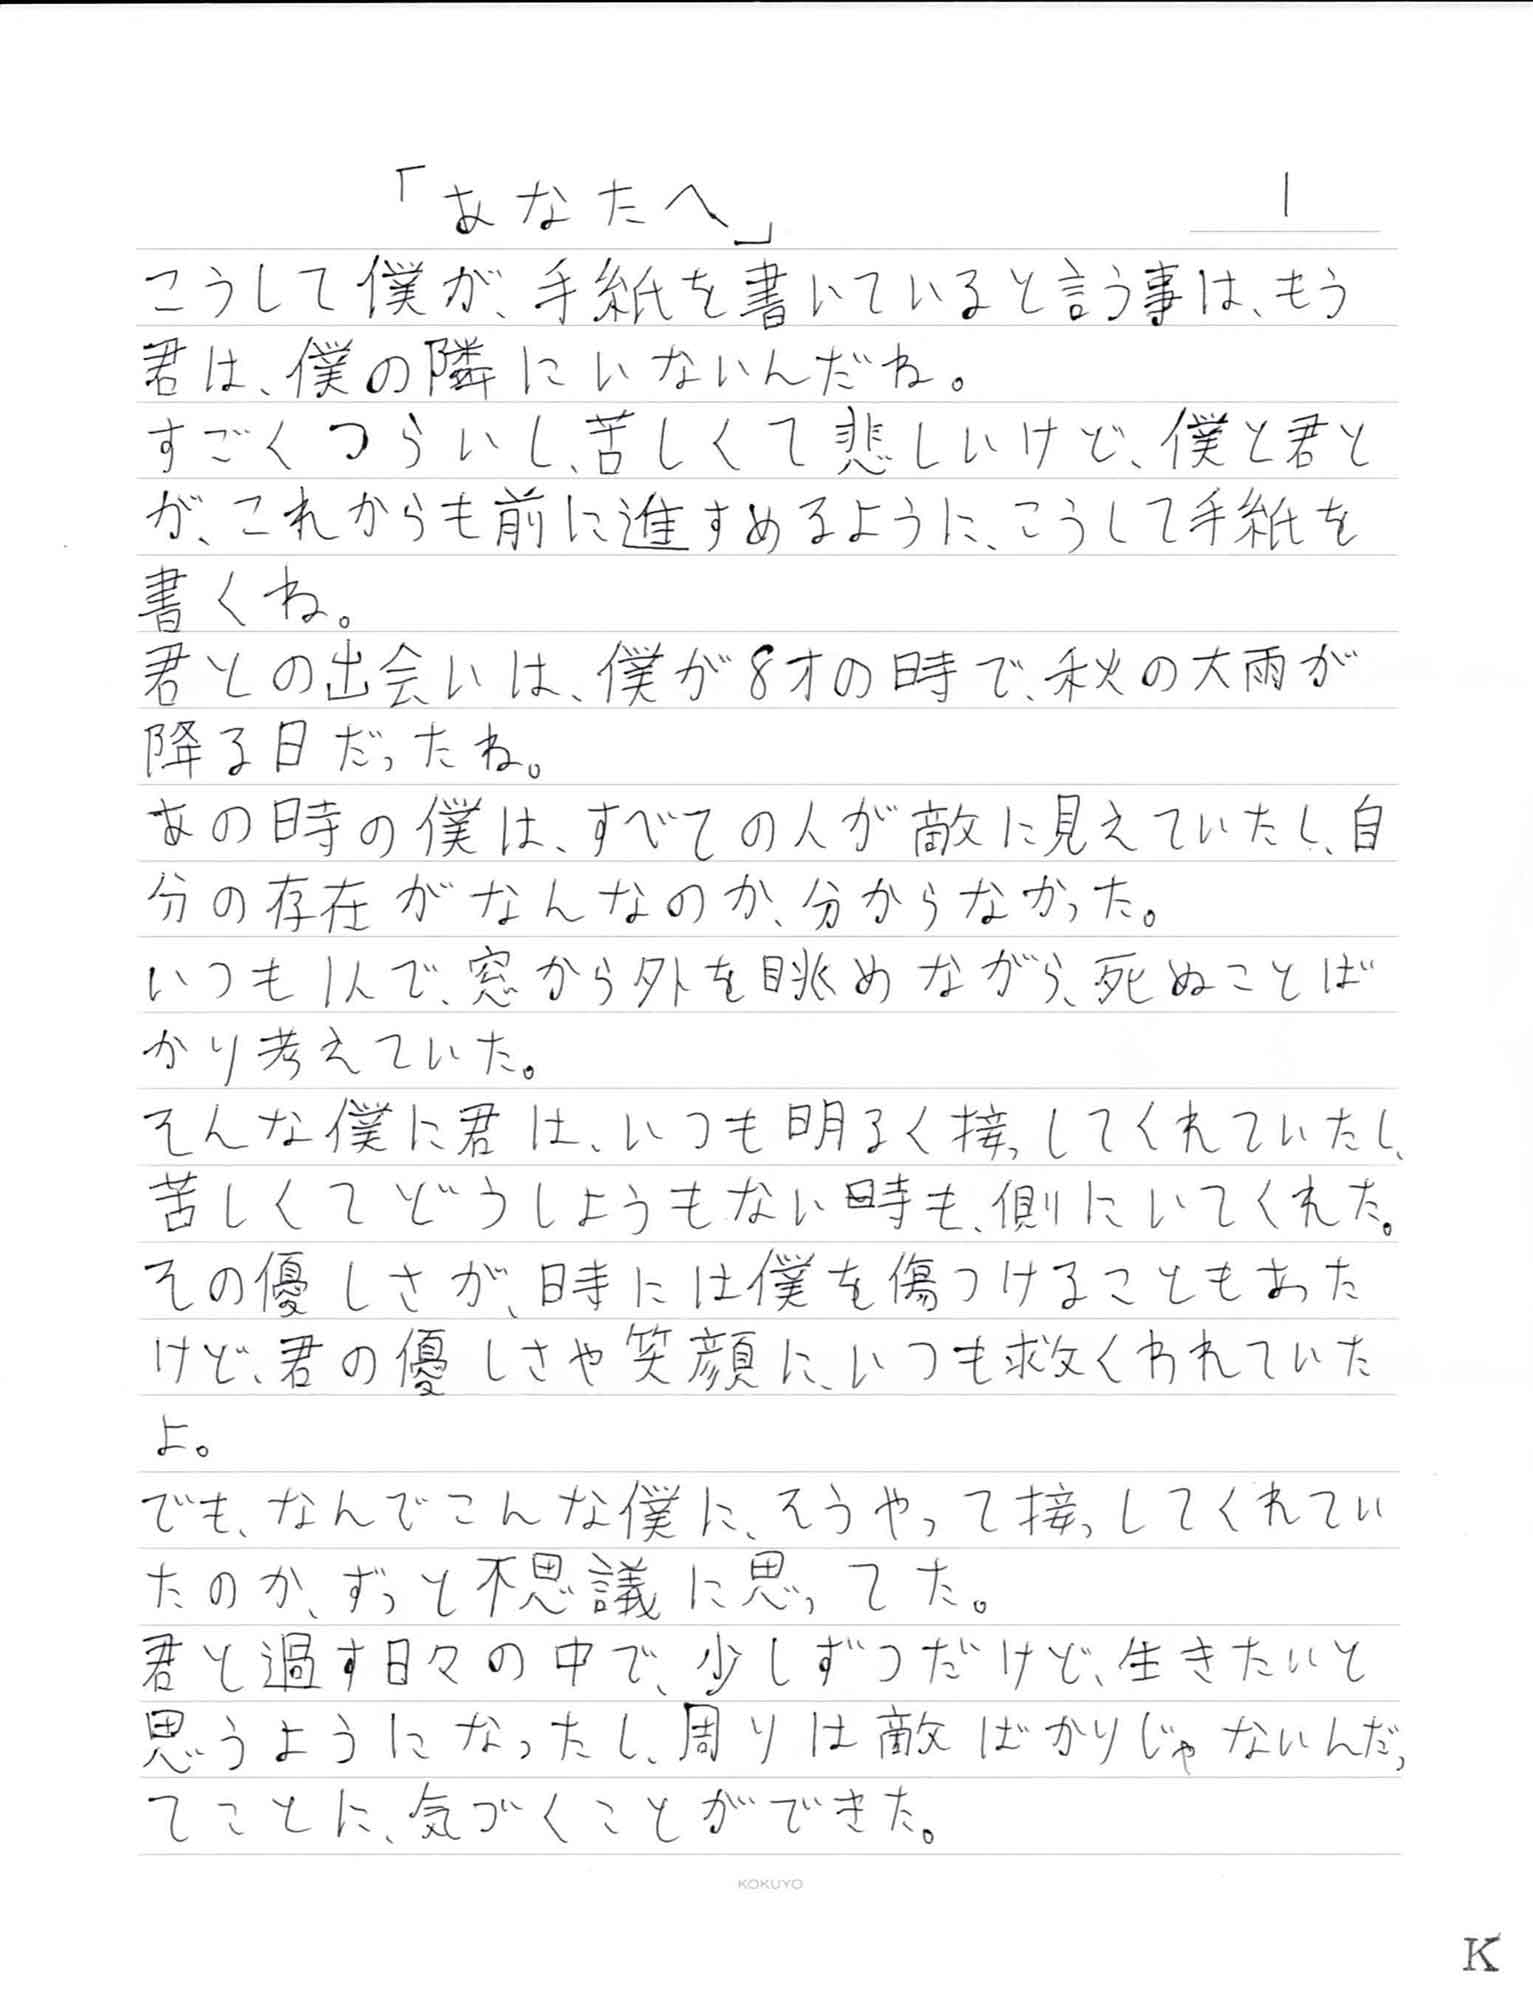 「あなたへ」 1
こうして僕が、手紙を書いていると言う事は、もう
君は、僕の隣にいないんだね。
すごくつらいし、苦しくて悲しいけど、僕と君と
が、これからも前に進すめるように、こうして手紙を
書くね。
君との出会いは、僕が8才の時で、秋の大雨が
降る日だったね。
あの時の僕は、すべての人が敵に見えていたし、自
分の存在がなんなのか、分からなかった。
いつも1人で、窓から外を眺めながら、死ぬことば
かり考えていた。
そんな僕に君は、いつも明るく接っしてくれていたし、
苦しくてどうしようもない時も、側にいてくれた。
その優しさが、時には僕を傷つけることもあった
けど、君の優しさや笑顔に、いつも救くわれていた
よ。
でも、なんでこんな僕に、そうやって接っしてくれてい
たのか、ずっと不思議に思ってた。
君と過す日々の中で、少しずつだけど、生きたいと
思うようになったし、周りは敵ばかりじゃないんだっ
てことに、気づくことができた。
KOKUYO
K